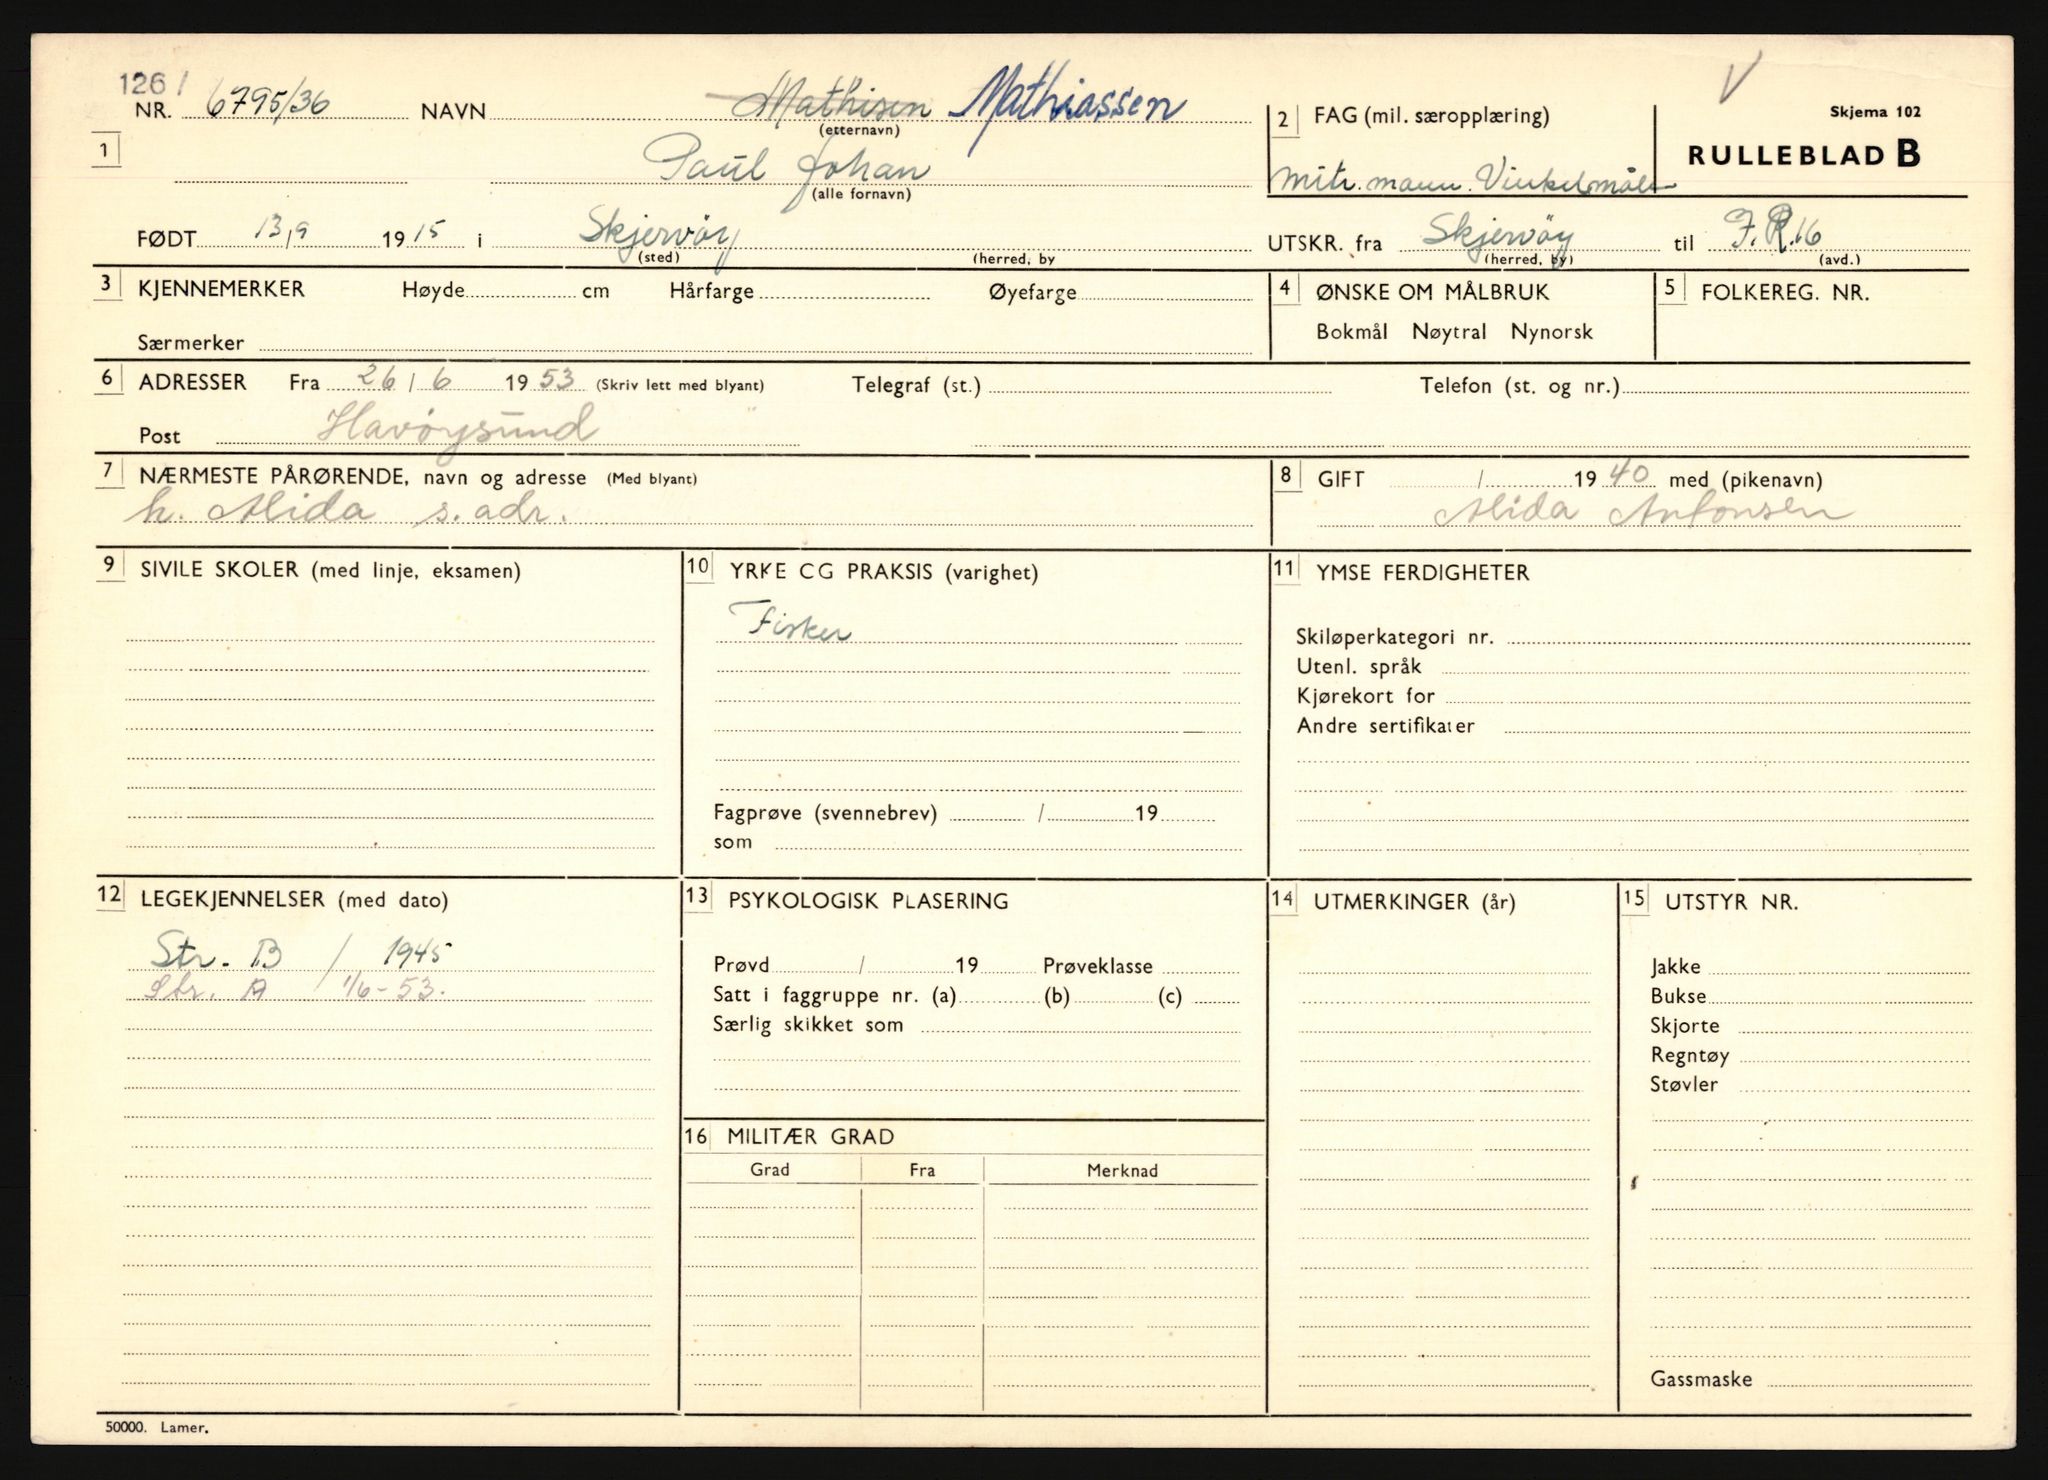 1261
NR. 6795/36 NAVN Mathisen Mathiassen
(etternavn)
1
Paul Johan
(alle fornavn)
2 FAG (mil. særopplæring)
Mitr. mann. Vinkelmåler
V
Skjema 102
RULLEBLAD B
FØDT 13/9 1915 i Skjervöy
(sted) (herred, by
UTSKR. fra Skjervöy til F.R.16
(herred, by) (avd.)
3 KJENNEMERKER Høyde cm Hårfarge Øyefarge
Særmerker
4 ØNSKE OM MÅLBRUK
Bokmål Nøytral Nynorsk
5 FOLKEREG. NR.
6 ADRESSER Fra 26/6 1953 (Skriv lett med blyant) Telegraf (st.) Telefon (st. og nr.)
Post Havøysund
7 NÆRMESTE PÅRØRENDE, navn og adresse (Med blyant)
h. Alida s. adr.
8 GIFT / 1940 med (pikenavn)
Alida Antonsen
9 SIVILE SKOLER (med linje, eksamen)
10 YRKE CG PRAKSIS (varighet)
Fisker
Fagprøve (svennebrev) / 19
som
11 YMSE FERDIGHETER
Skiløperkategori nr.
Utenl. språk
Kjørekort for
Andre sertifikater
12 LEGEKJENNELSER (med dato)
Str. B / 1945
Str. A 1/6-53.
13 PSYKOLOGISK PLASERING
Prøvd / 19 Prøveklasse
Satt i faggruppe nr. (a) (b) (c)
Særlig skikket som
14 UTMERKINGER (år)
15 UTSTYR NR.
Jakke
Bukse
Skjorte
Regntøy
Støvler
Gassmaske
16 MILITÆR GRAD
Grad Fra Merknad
50000. Lamer.